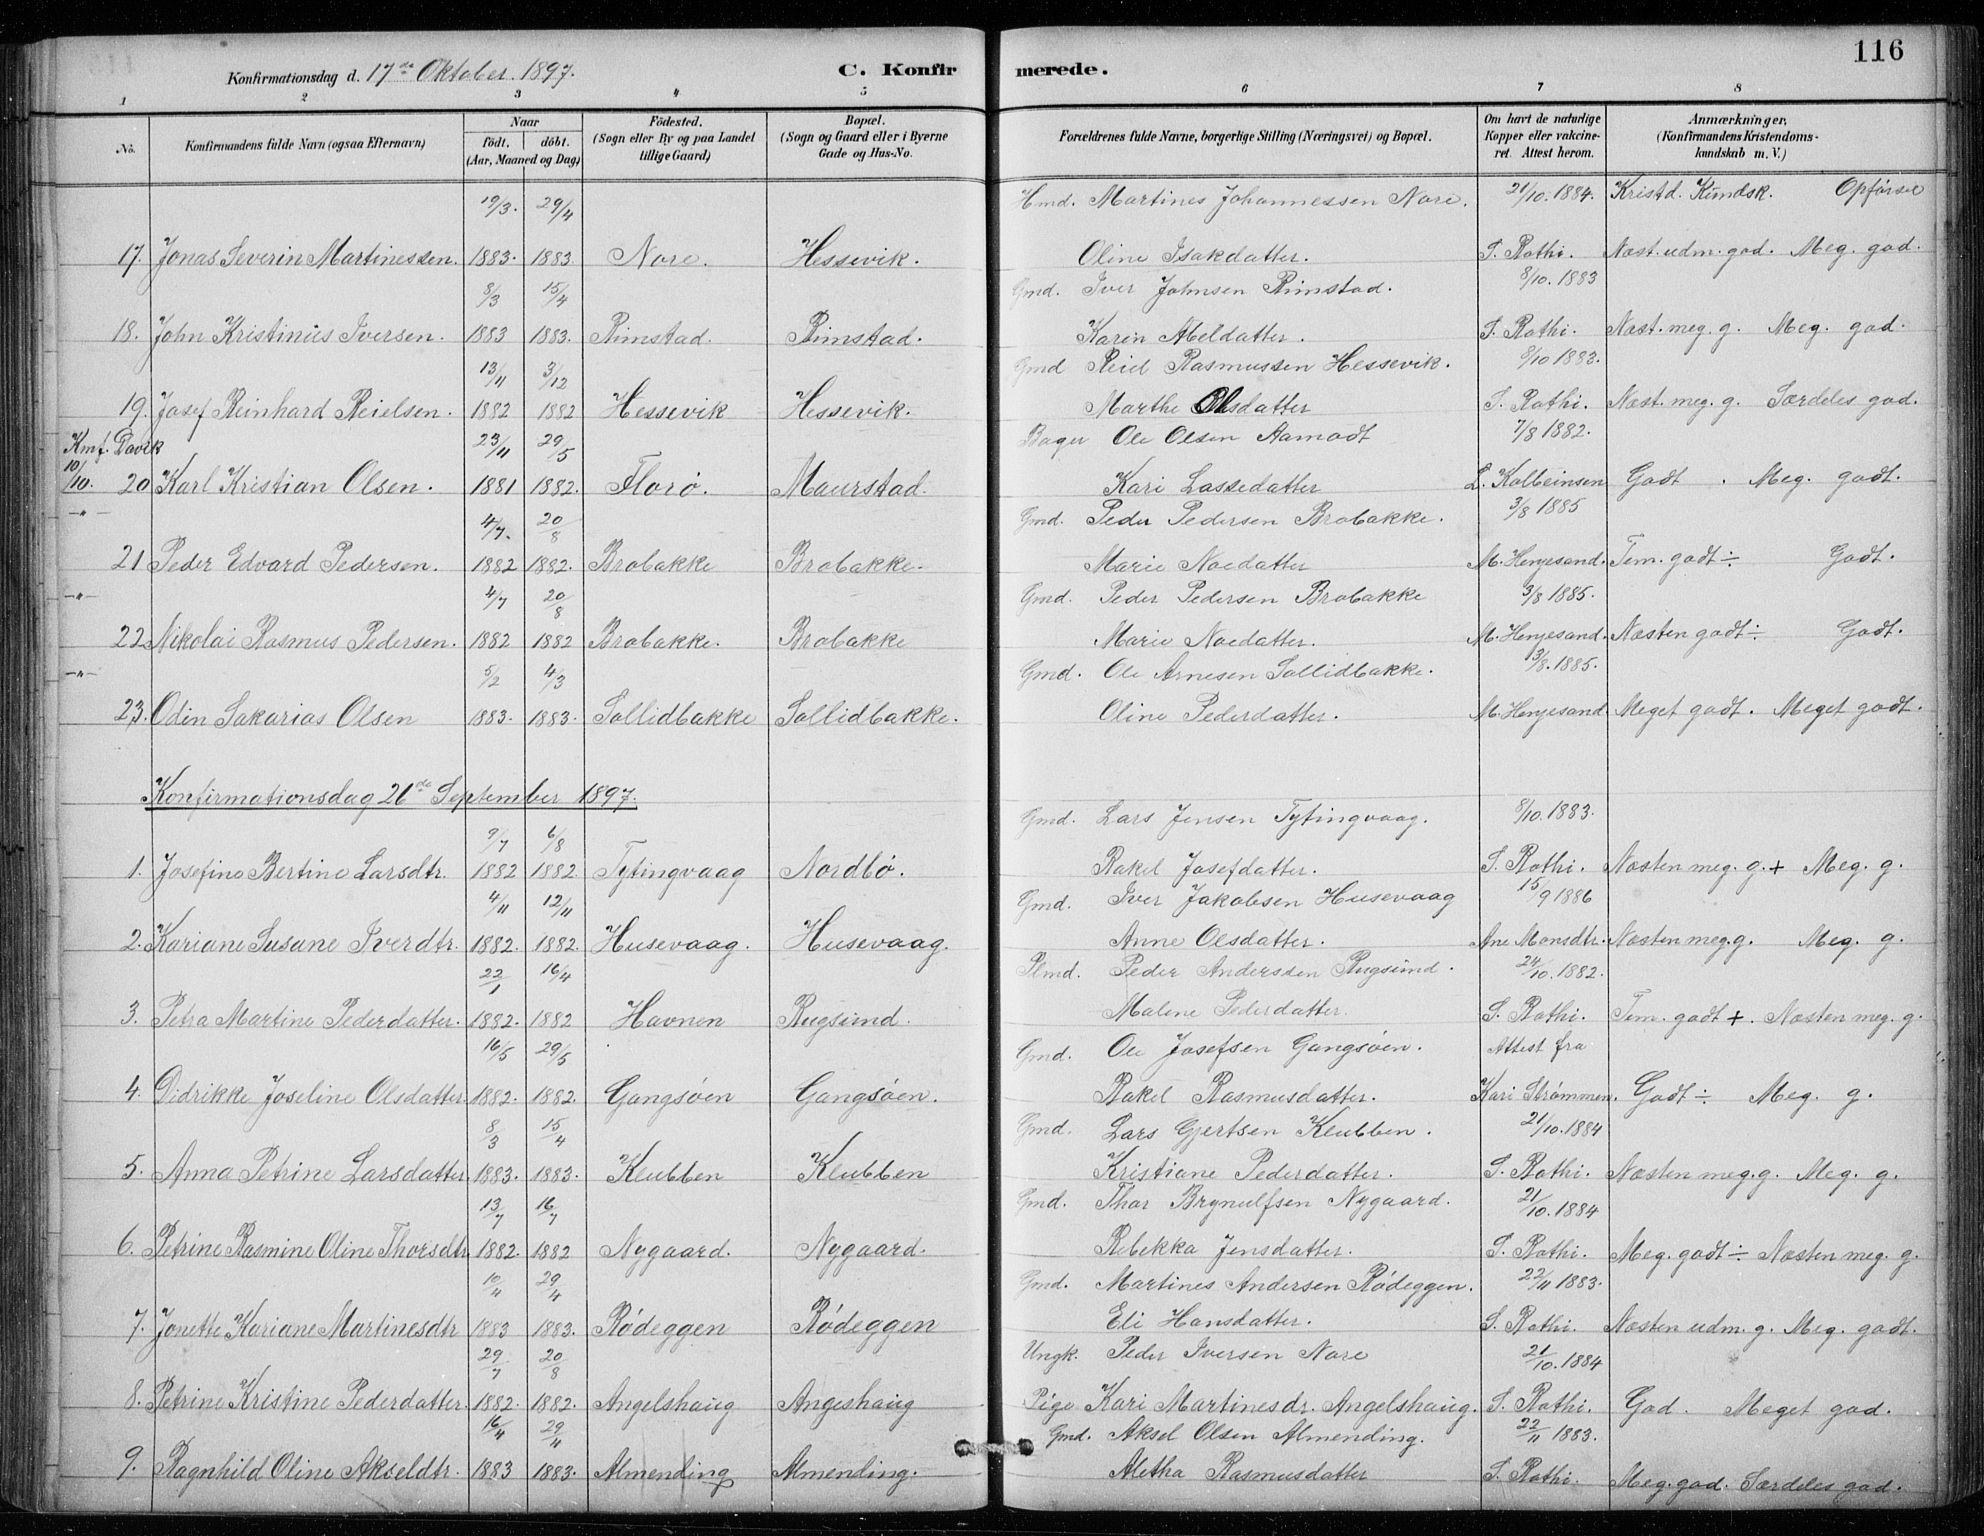 116
Konfirmationsdag d. 17de Oktober. 1897. C. Konfirmerede.
1 2 3 4 5 6 7 8
No. Konfirmandens fulde Navn (ogsaa Efternavn) Naar født. døbt. (Aar, Maaned og Dag) Fødested. (Sogn eller By og paa Landet tillige Gaard) Bopæl. (Sogn og Gaard eller i Byerne Gade og Hus-No. Forældrenes fulde Navne, borgerlige Stilling (Næringsvei) og Bopæl. Om havt de naturlige Kopper eller vakcineret. Attest herom. Anmærkninger, (Konfirmandens Kristendomskundskab m. V.)
19/3. 29/4 Hmd. Martines Johannessen Nore. 21/10. 1884. Kristd. Kundsk. Opførsel
17. Jonas Severin Martinessen. 1883. 1883 Nore. Hessevik. Oline Isakdatter. S. Rothi. Næst. udm. god. Meg. god.
8/3 15/4 Gmd. Iver Johnsen Rimstad. 8/10. 1883
18. John Kristinus Iversen. 1883 1883. Rimstad. Rimstad. Karen Abeldatter. S. Rothi. Næst. meg. g. Meg. god.
13/11 3/12 Gmd Reiel Rasmussen Hessevik. 8/10 1883.
19. Josef Reinhard Reielsen. 1882 1882 Hessevik Hessevik. Marthe Olsdatter S. Rothi. Næst. meg. g. Særdeles god.
Kmf. Davik 23/11 29/5 Bager Ole Olsen Aamodt 7/8 1882.
10/10. 20 Karl Kristian Olsen. 1881 1882. Florø. Maurstad. Kari Lassedatter L. Kolbeinsen Godt. Meg. godt.
-"- 4/7. 20/8 Gmd. Peder Pedersen Brobakke. 3/8 1885
21 Peder Edvard Pedersen. 1882 1882. Brobakke Brobakke. Marie Noedatter M. Henjesand. Tem. godt ÷ Godt.
-"- 4/7 20/8 Gmd. Peder Pedersen Brobakke 3/8 1885.
22 Nikolai Rasmus Pedersen. 1882 1882 Brobakke. Brobakke Marie Noedatter. M. Henjesand. Næsten godt ÷ Godt.
-"- 5/2 4/3 Gmd. Ole Arnesen Sollidbakke. 3/8. 1885.
23. Odin Sakarias Olsen 1883. 1883. Sollidbakke Sollidbakke. Oline Pederdatter. M. Henjesand. Meget godt. Meget godt.
Konfirmationsdag 26de September 1897.
9/7 6/8 Gmd. Lars Jensen Tytingvaag. 8/10. 1883.
1. Josefine Bertine Larsdtr. 1882 1882. Tytingvaag Nordbø. Rakel Josefdatter. S. Rothi. Næsten meg. g. + Meg. g.
4/11 12/11 Gmd. Iver Jakobsen Husevaag 15/9 1886
2. Kariane Susane Iverdtr. 1882. 1882. Husevaag. Husevaag. Anne Olsdatter. Ane Monsdtr. Næsten meg. g. Meg. g.
22/1 16/4 Plmd. Peder Anderssen Rugsund. 24/10. 1882.
3. Petra Martine Pederdatter. 1882. 1882 Havnen Rugsund. Malene Pederdatter. S. Rothi. Tem. godt +. Næsten meg. g.
16/5 29/5 Gmd. Ole Josefsen Gangsøen. Attest fra
4. Didrikke Joseline Olsdatter. 1882. 1882. Gangsøen Gangsøen. Rakel Rasmusdatter. Kari Strømmen. Godt ÷ Meg. g.
8/3 15/4 Gmd. Lars Gjertsen Klubben. 21/10. 1884
5. Anna Petrine Larsdatter 1883. 1883. Klubben Klubben Kristiane Pederdatter. S. Rothi. Næsten meg. g. Meg. g.
13/7 16/7 Gmd. Thor Brynulfsen Nygaard. 21/10. 1884
6. Petrine Rasmine Oline Thorsdtr. 1882. 1882 Nygaard. Nygaard. Rebekka Jensdatter. S. Rothi. Meg. godt ÷ Næsten meg. g.
10/4 29/4 Gmd. Martines Andersen Rødeggen. 22/11 1883.
7. Jonette Kariane Martinesdtr 1883 1883. Rødeggen Rødeggen Eli Hansdatter. S. Rothi. Næsten udm. g. Meg. godt.
29/7 20/8 Ungk. Peder Iversen Nore 21/10. 1884
8. Petrine Kristine Pederdatter. 1882. 1882. Angelshaug Angeshaug Pige Kari Martinesdr. Angelshaug. S. Rothi. God. Meget god.
16/4 29/4 Gmd. Aksel Olsen Almending. 22/11 1883.
9. Ragnhild Oline Akseldtr. 1883 1883. Almending Almending. Aletha Rasmusdatter S. Rothi. Meg. god. Særdeles god.